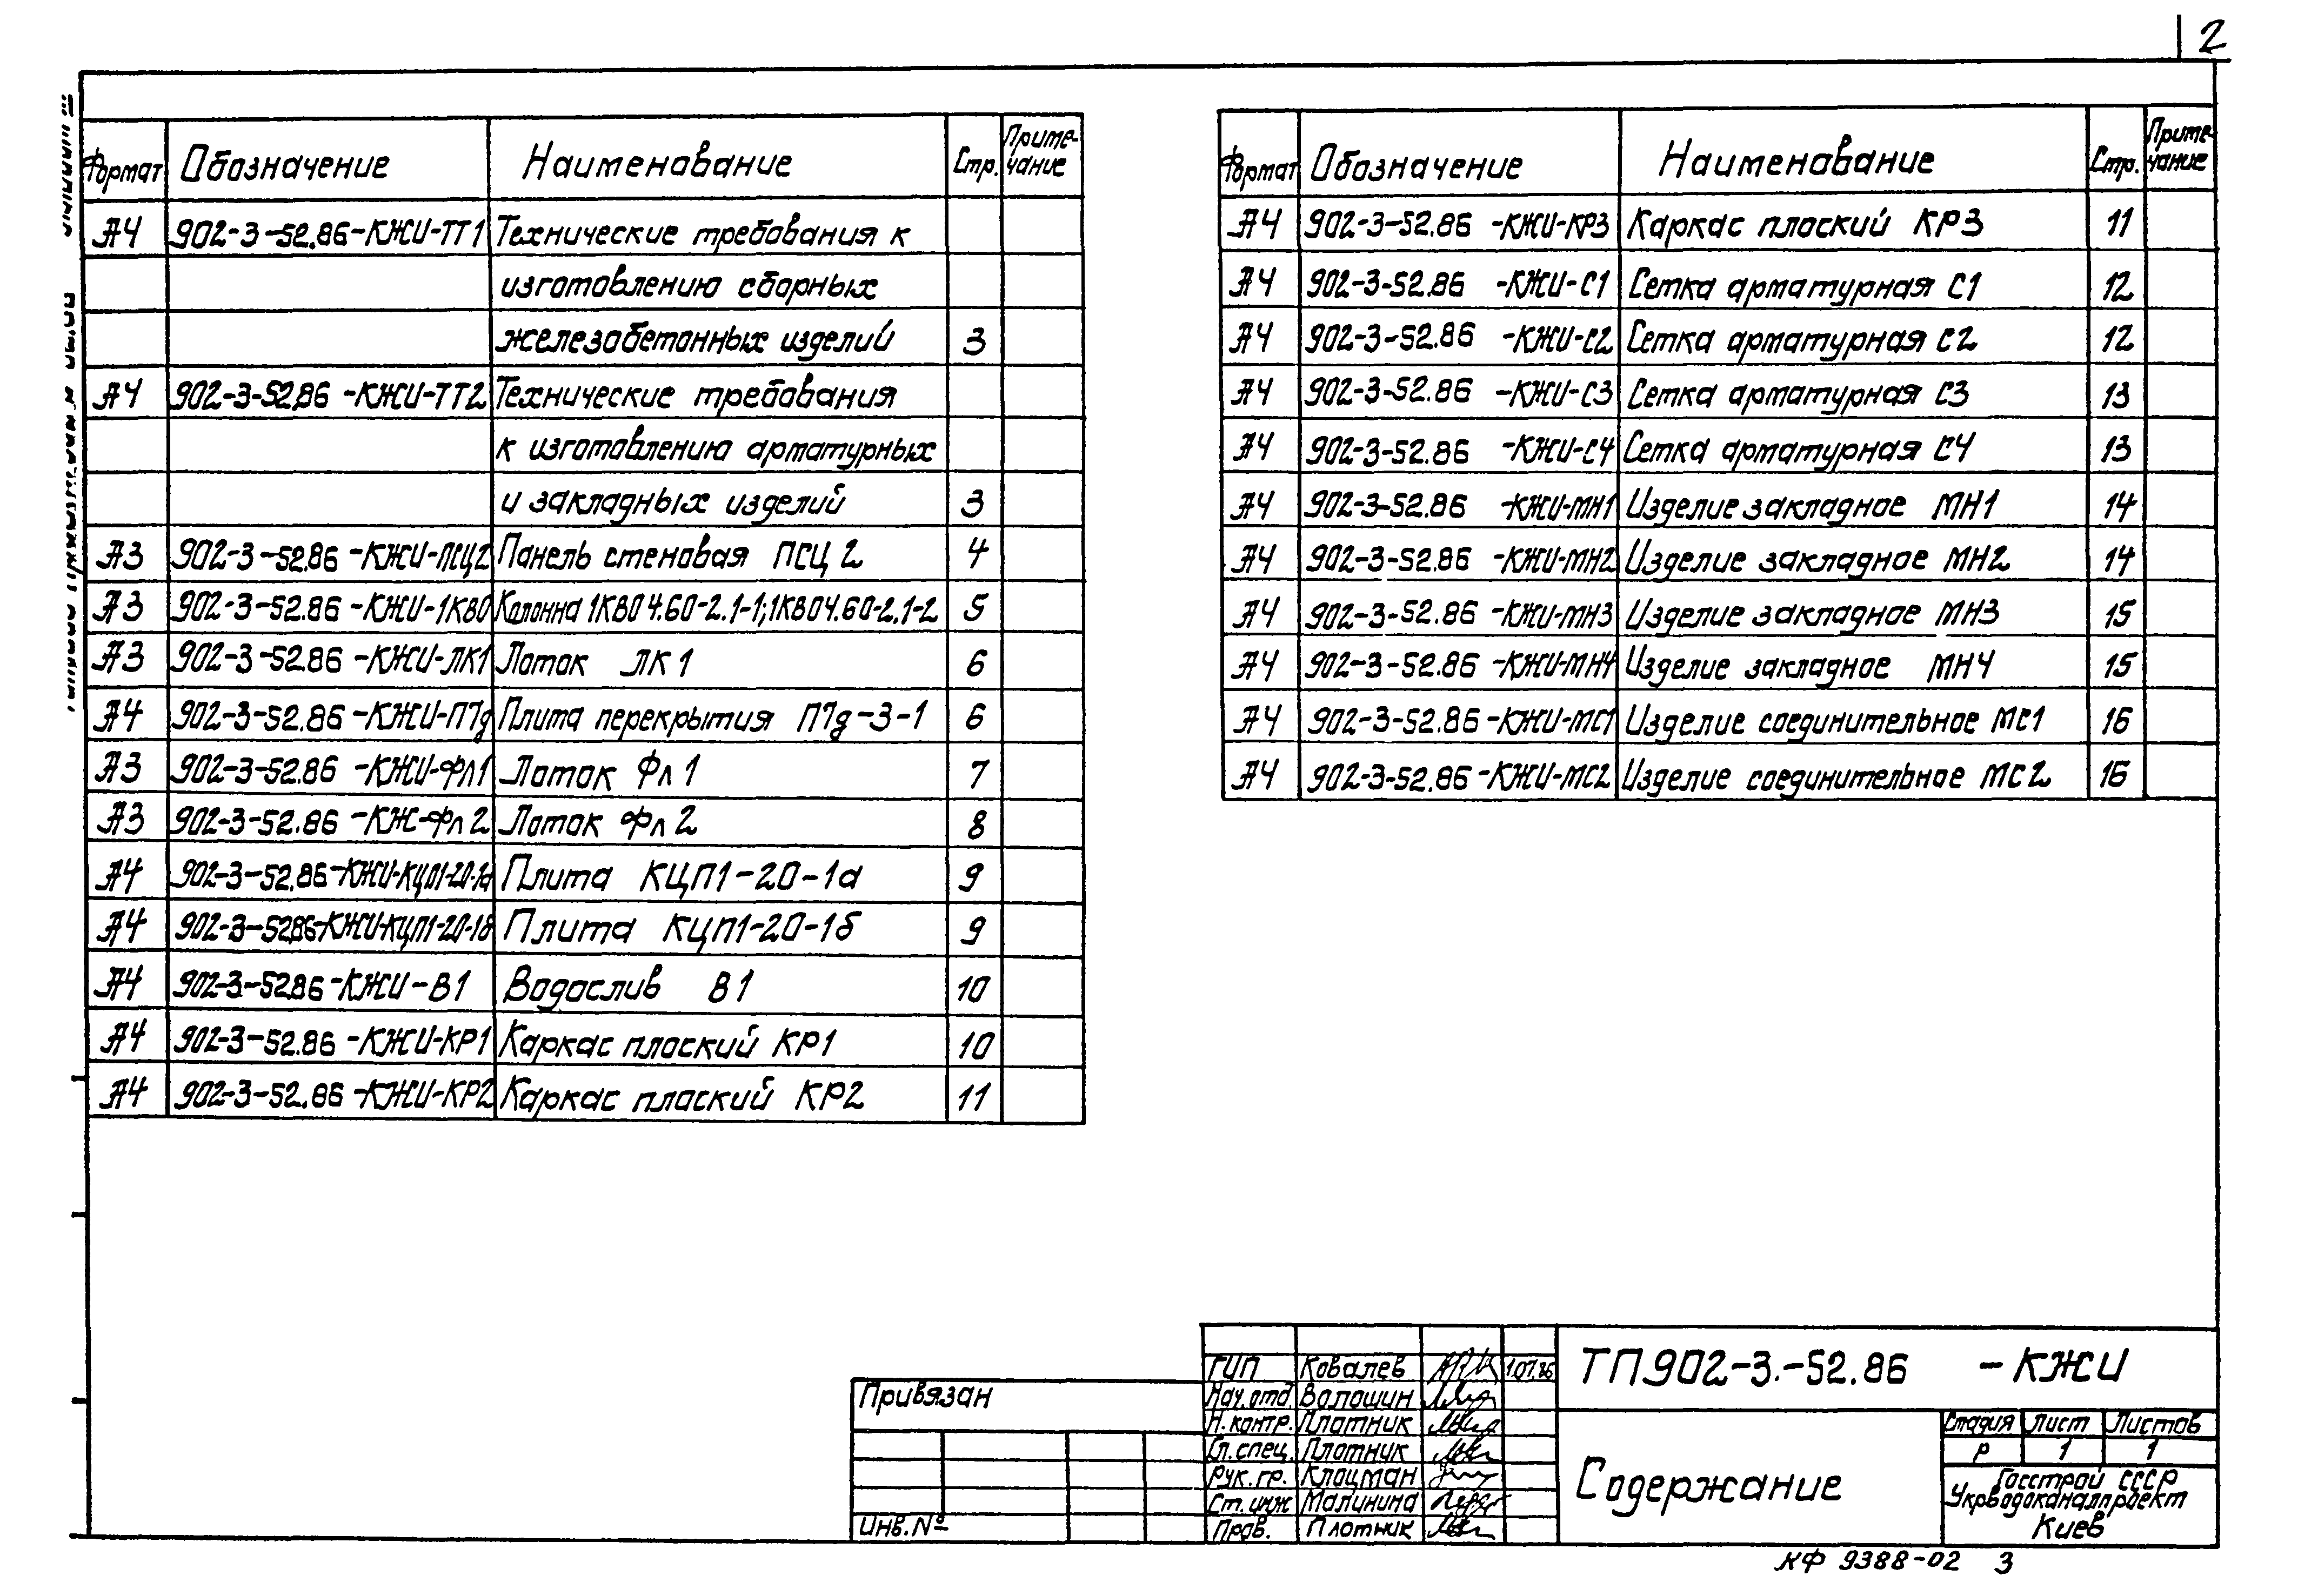 2
Формат Обозначение Наименование Стр. Приме-чание
А4 902-3-52.86-КЖИ-ТТ1 Технические требования к
изготовлению сборных
железобетонных изделий 3
А4 902-3-52.86-КЖИ-ТТ2 Технические требования
к изготовлению арматурных
и закладных изделий 3
А3 902-3-52.86-КЖИ-ПСЦ2 Панель стеновая ПСЦ 2 4
А3 902-3-52.86-КЖИ-1КВО Колонна 1КВО4.60-2.1-1; 1КВО4.60-2.1-2 5
А3 902-3-52.86-КЖИ-ЛК1 Лоток ЛК1 6
А4 902-3-52.86-КЖИ-П7д Плита перекрытия П7д-3-1 6
А3 902-3-52.86-КЖИ-Фл1 Лоток Фл1 7
А3 902-3-52.86-КЖ-Фл2 Лоток Фл2 8
А4 902-3-52.86-КЖИ-КЦП1-20-1а Плита КЦП1-20-1а 9
А4 902-3-52.86-КЖИ-КЦП1-20-1б Плита КЦП1-20-1б 9
А4 902-3-52.86-КЖИ-В1 Водослив В1 10
А4 902-3-52.86-КЖИ-КР1 Каркас плоский КР1 10
А4 902-3-52.86-КЖИ-КР2 Каркас плоский КР2 11
Формат Обозначение Наименование Стр. Приме-чание
А4 902-3-52.86-КЖИ-КР3 Каркас плоский КР3 11
А4 902-3-52.86-КЖИ-С1 Сетка арматурная С1 12
А4 902-3-52.86-КЖИ-С2 Сетка арматурная С2 12
А4 902-3-52.86-КЖИ-С3 Сетка арматурная С3 13
А4 902-3-52.86-КЖИ-С4 Сетка арматурная С4 13
А4 902-3-52.86-КЖИ-МН1 Изделие закладное МН1 14
А4 902-3-52.86-КЖИ-МН2 Изделие закладное МН2 14
А4 902-3-52.86-КЖИ-МН3 Изделие закладное МН3 15
А4 902-3-52.86-КЖИ-МН4 Изделие закладное МН4 15
А4 902-3-52.86-КЖИ-МС1 Изделие соединительное МС1 16
А4 902-3-52.86-КЖИ-МС2 Изделие соединительное МС2 16
Привязан
Инв.№
ГИП Ковалев 1.07.86
Нач.отд. Волошин
Н.контр. Плотник
Гл.спец. Плотник
Рук.гр. Клоцман
Ст.инж Малинина
Пров. Плотник
ТП.902-3.-52.86 -КЖИ
Содержание
Стадия Лист Листов
Р 1 1
Госстрой СССР
Укрводоканалпроект
Киев
КФ 9388-02 3